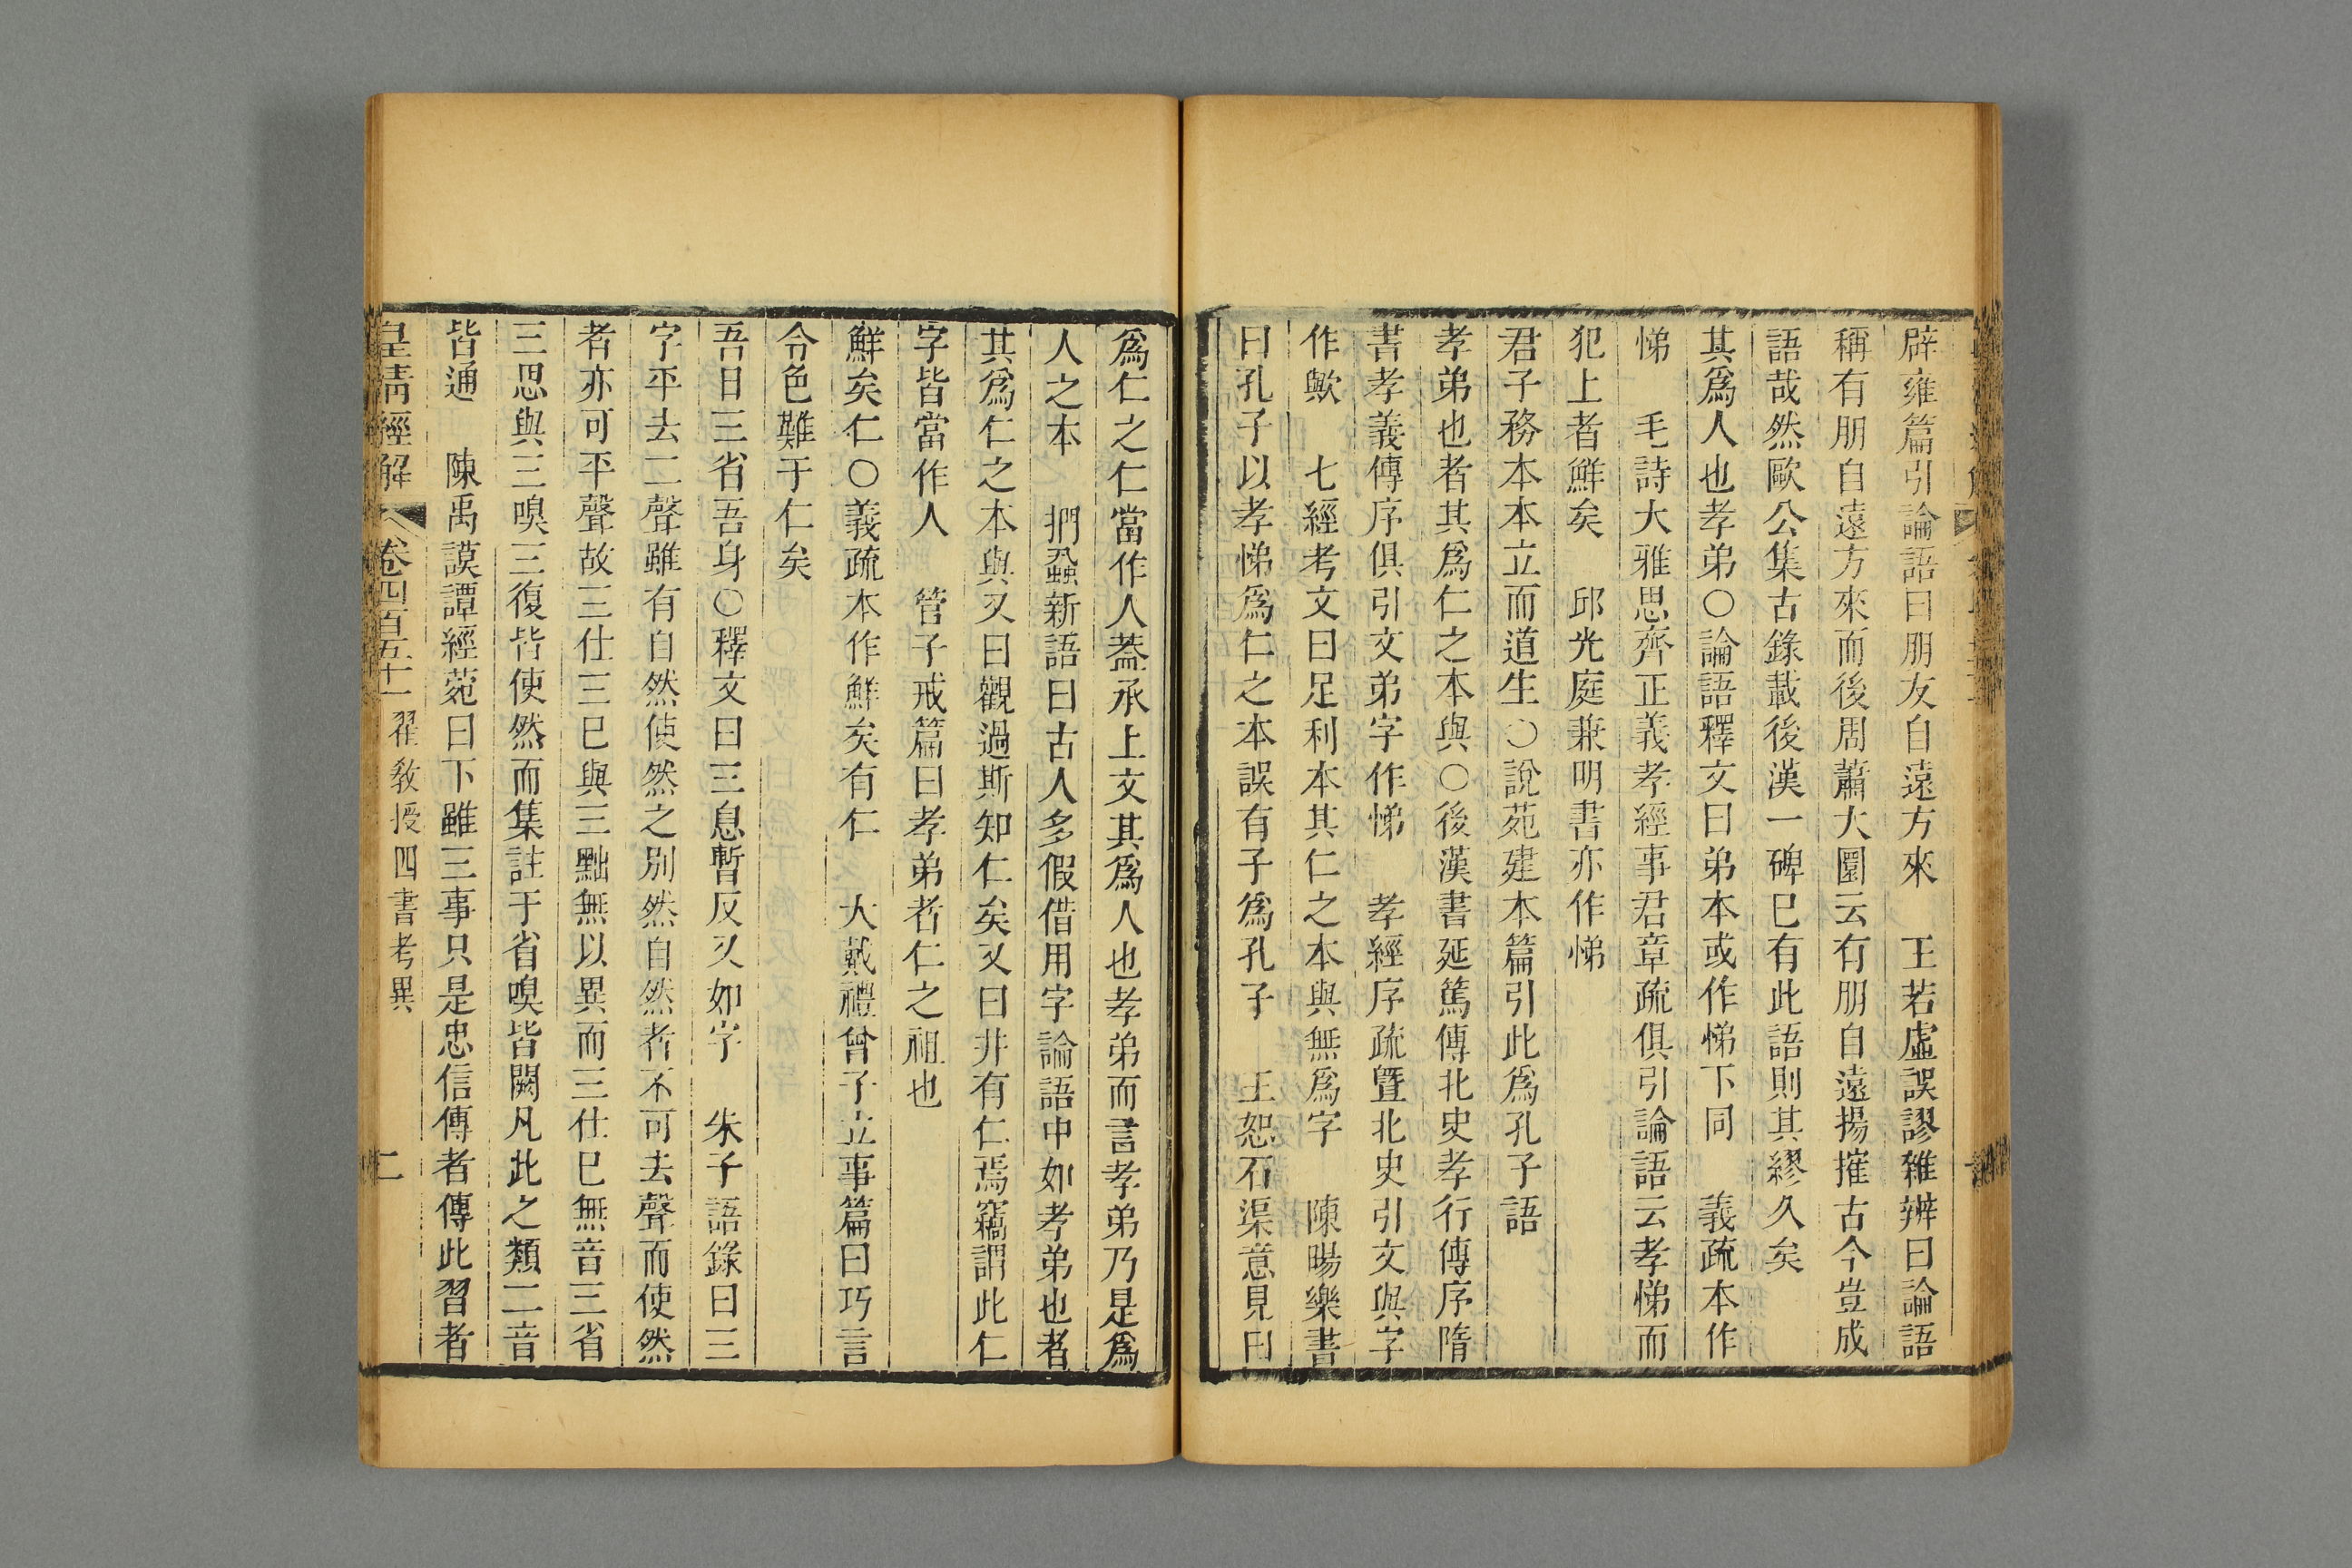 辟雍篇引論語曰朋友自遠方來　王若虛誤謬雜辨曰論語
稱有朋自遠方來而後周蕭大圜云有朋自遠揚搉古今豈成
語哉然歐公集古錄載後漢一碑巳有此語則其繆久矣
其爲人也孝弟○論語釋文曰弟本或作悌下同　義疏本作
悌　毛詩大雅思齊正義孝經事君章疏俱引論語云孝悌而
犯上者鮮矣　邱光庭兼明書亦作悌
君子務本本立而道生○說苑建本篇引此爲孔子語
孝弟也者其爲仁之本與○後漢書延篤傳北史孝行傳序隋
書孝義傳序俱引文弟字作悌　孝經序疏曁北史引文與字
作歟　七經考文曰足利本其仁之本與無爲字　陳暘樂書
曰孔子以孝悌爲仁之本誤有子爲孔子　王恕石渠意見曰
爲仁之仁當作人葢承上文其爲人也孝弟而言孝弟乃是爲
人之本　捫蝨新語曰古人多假借用字論語中如孝弟也者
其爲仁之本與又曰觀過斯知仁矣又曰井有仁焉竊謂此仁
字皆當作人　管子戒篇曰孝弟者仁之祖也
鮮矣仁○義疏本作鮮矣有仁　大戴禮曾子立事篇曰巧言
令色難于仁矣
吾日三省吾身○釋文曰三息暫反又如字　朱子語錄曰三
字平去二聲雖有自然使然之別然自然者不可去聲而使然
者亦可平聲故三仕三巳與三黜無以異而三仕巳無音三省
三思與三嗅三復皆使然而集註于省嗅皆闕凡此之類二音
皆通　陳禹謨譚經菀曰下雖三事只是忠信傳者傳此習者
皇淸經解　卷四百五十一　翟敎授四書考異　二